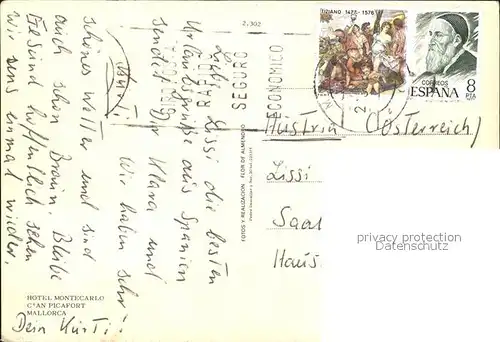 2,302
TIZIANO 1477-1576
CORREOS
ESPAÑA
8
PTA
BARATO
SEGURO
ECONOMICO
Liebe Lissi die besten
Urlaubsgrüße aus Spanien
sendet Dir Klara und
Kurti
Wir haben sehr
schönes Wetter und sind
auch schon Braun.
hoffentlich sehen
wir uns einmal wieder.
Dein Kurti!
Austria (Österreich)
Lissi
Saal
Haus
privacy protection
Datenschutz
FOTOS Y REALIZACION FLOR DE ALMENDRO
HOTEL MONTECARLO
C'AN PICAFORT
MALLORCA